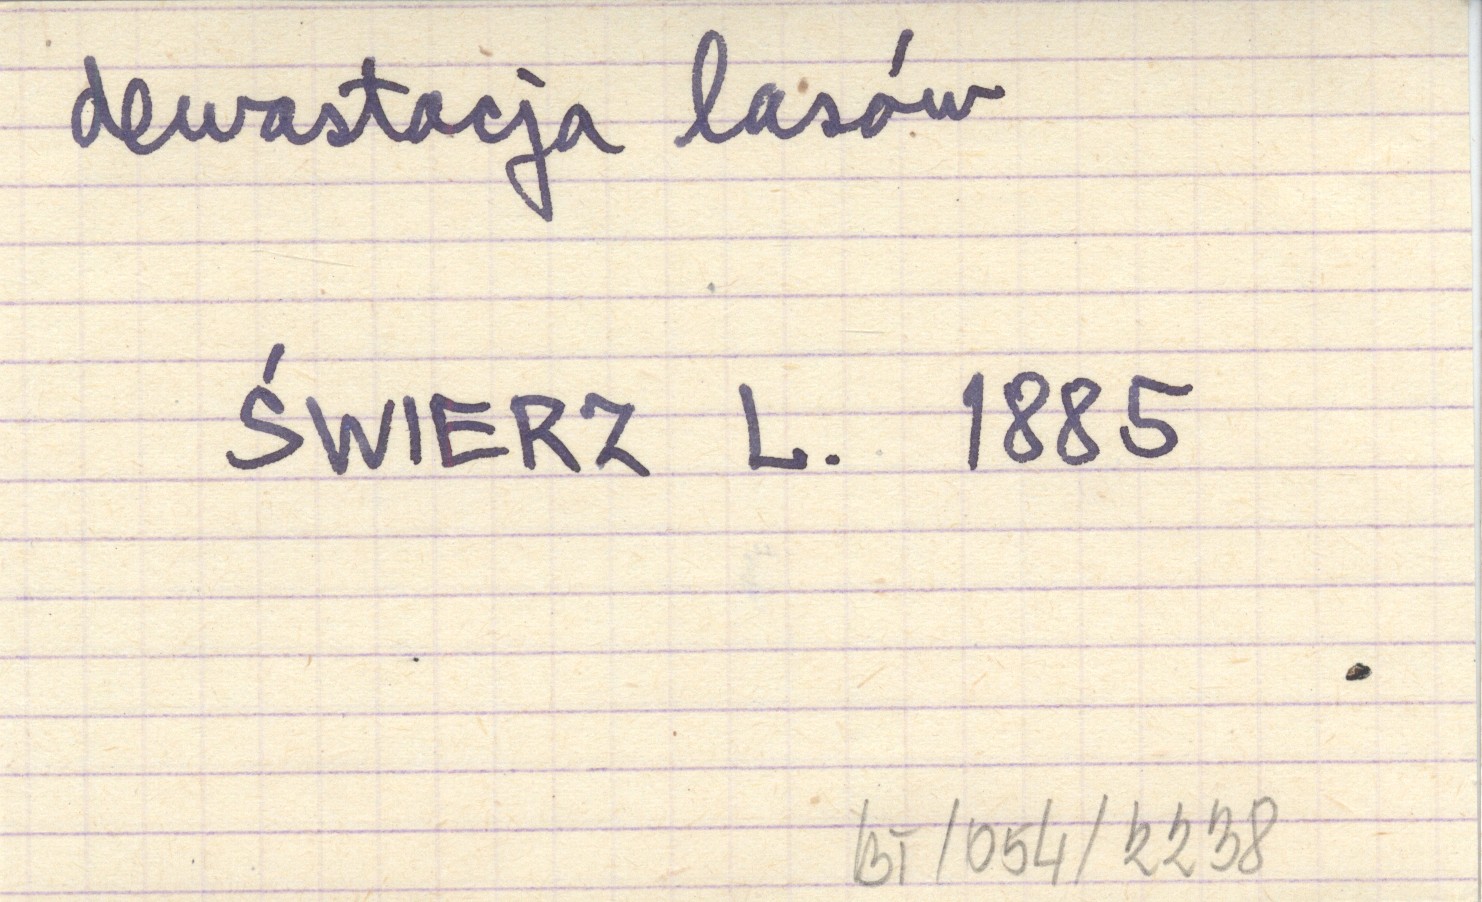 dewastacja lasów
ŚWIERZ L. 1885
BT/054/2238